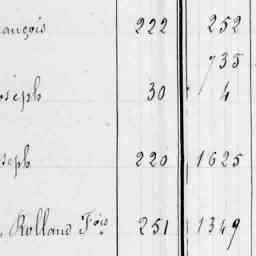 ançois 222 252
735
oseph 30 4
seph 220 1625
, Rolland Fçois 251 1349